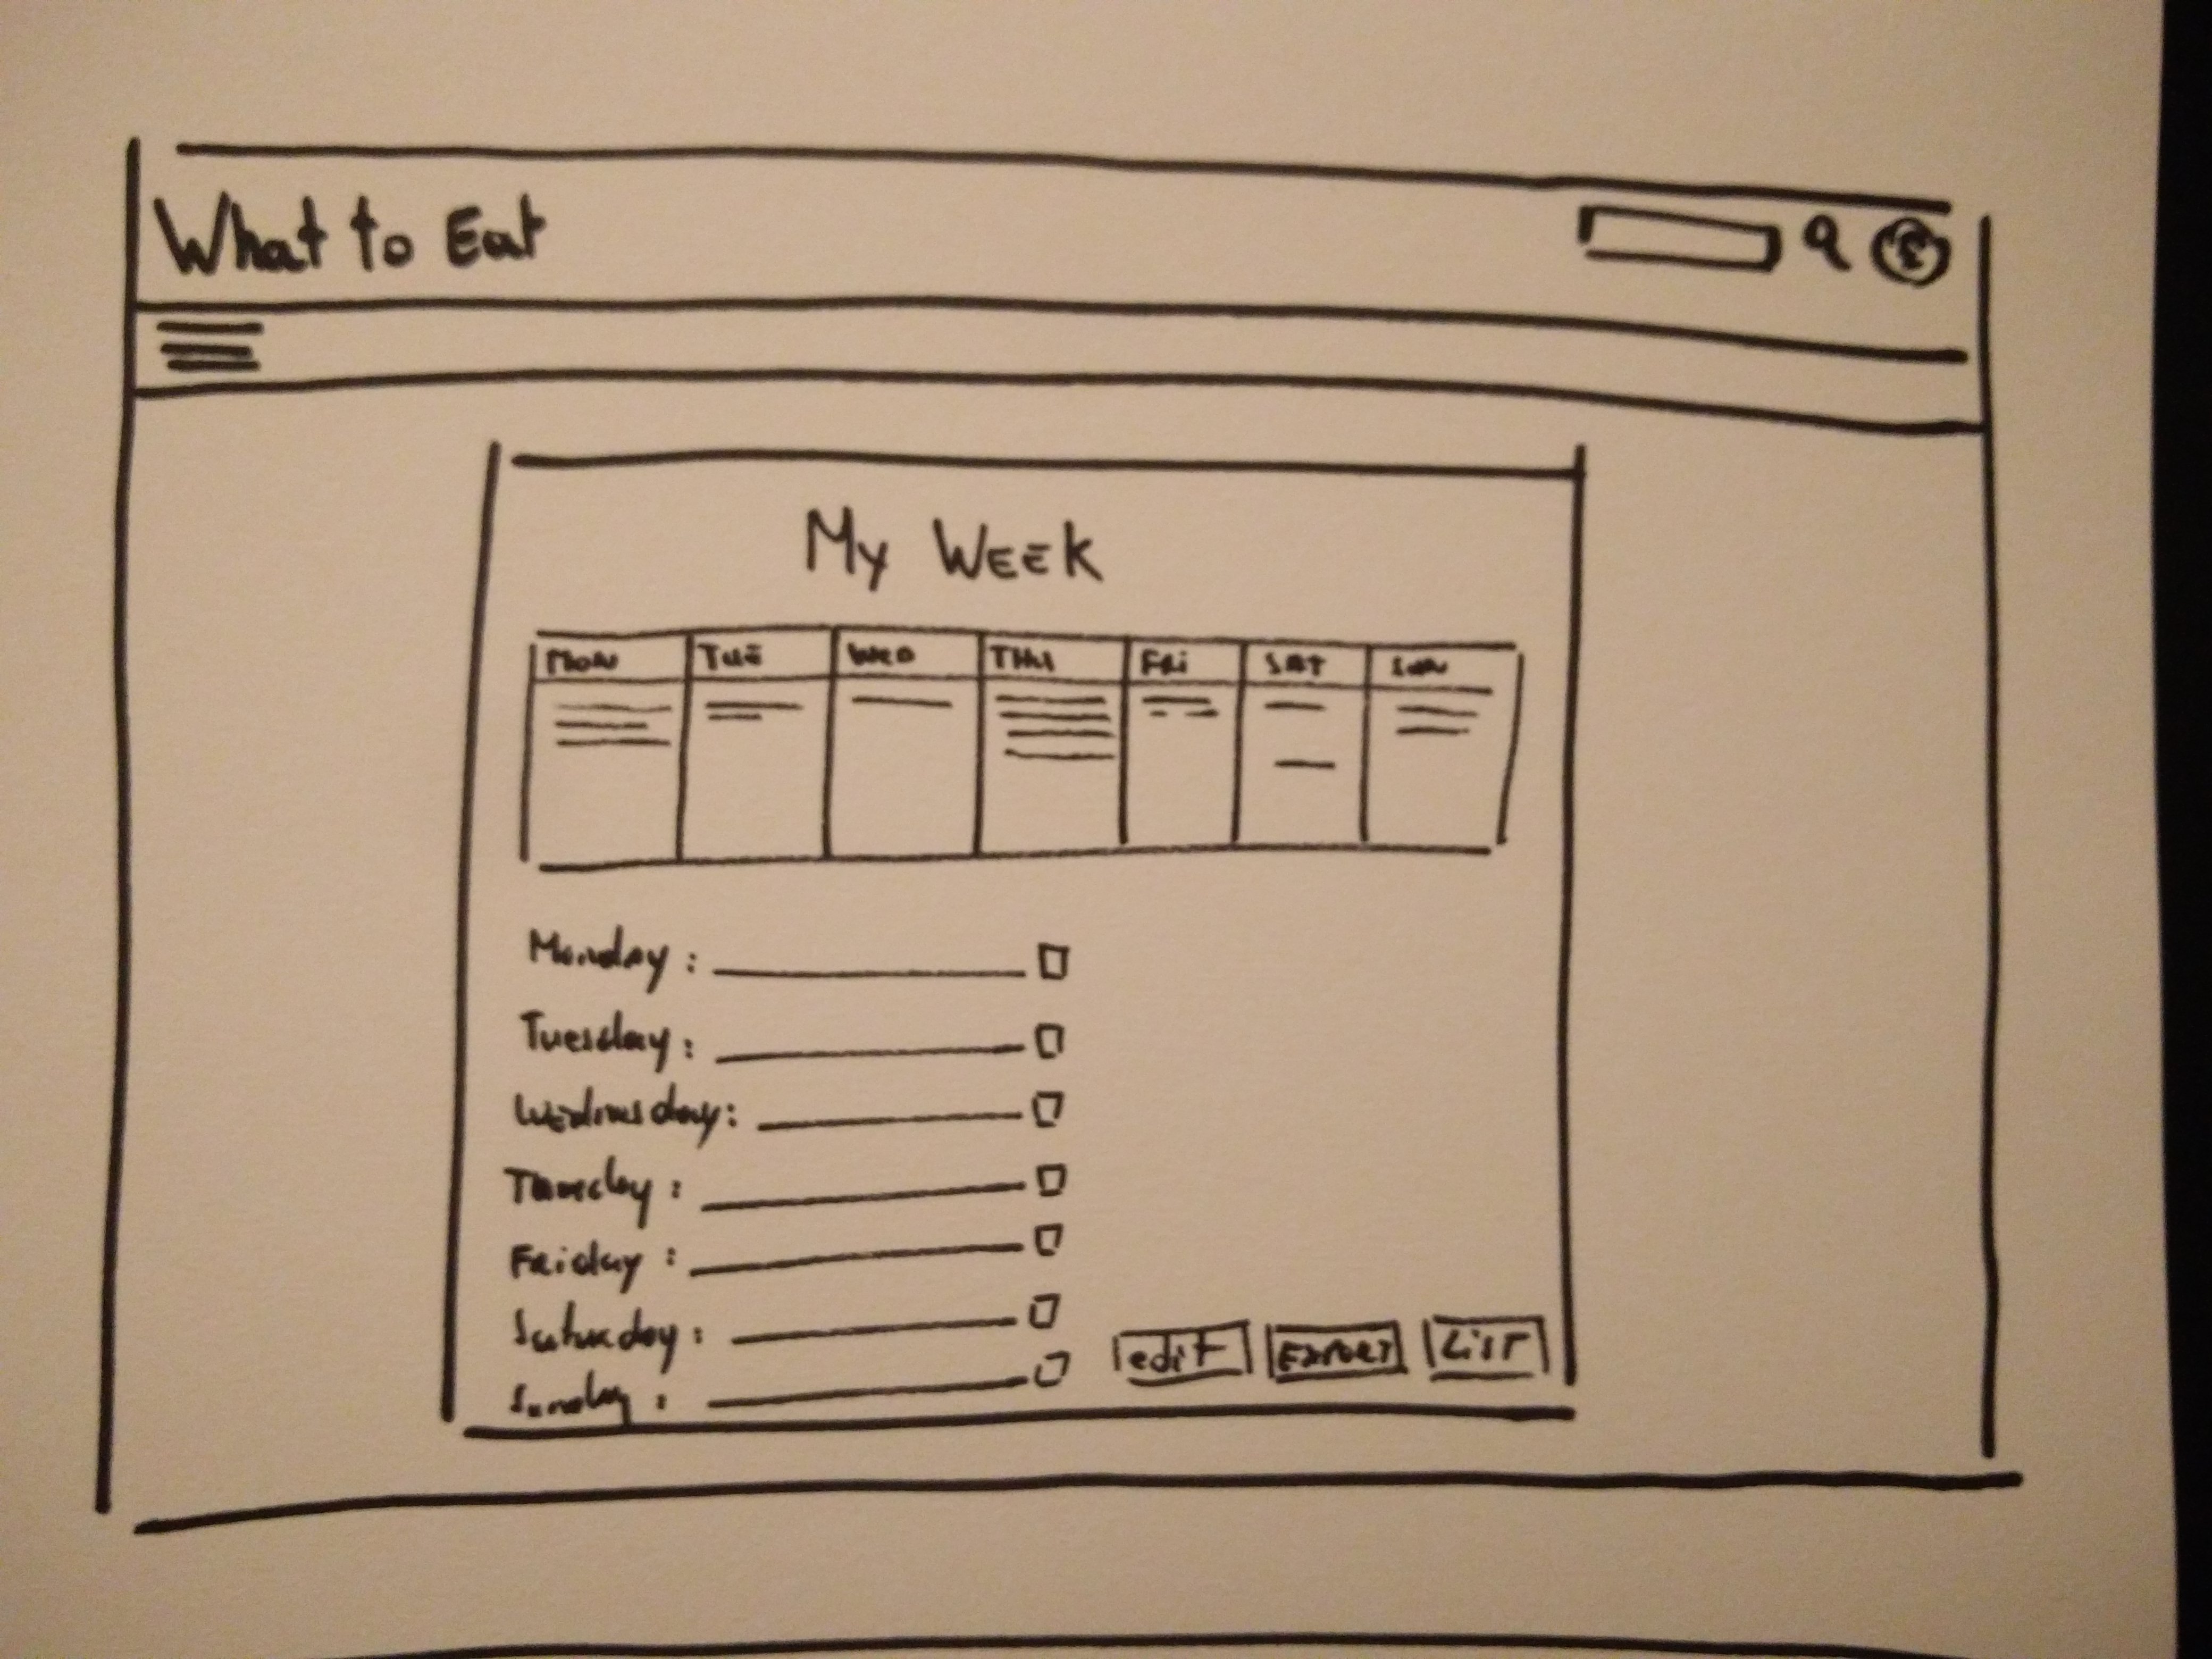 What to Eat
My WEEK
MON TUE WED THU FRI SAT SUN
Monday :
Tuesday :
Wednesday:
Friday :
Saturday :
Sunday :
edit EXPORT LIST